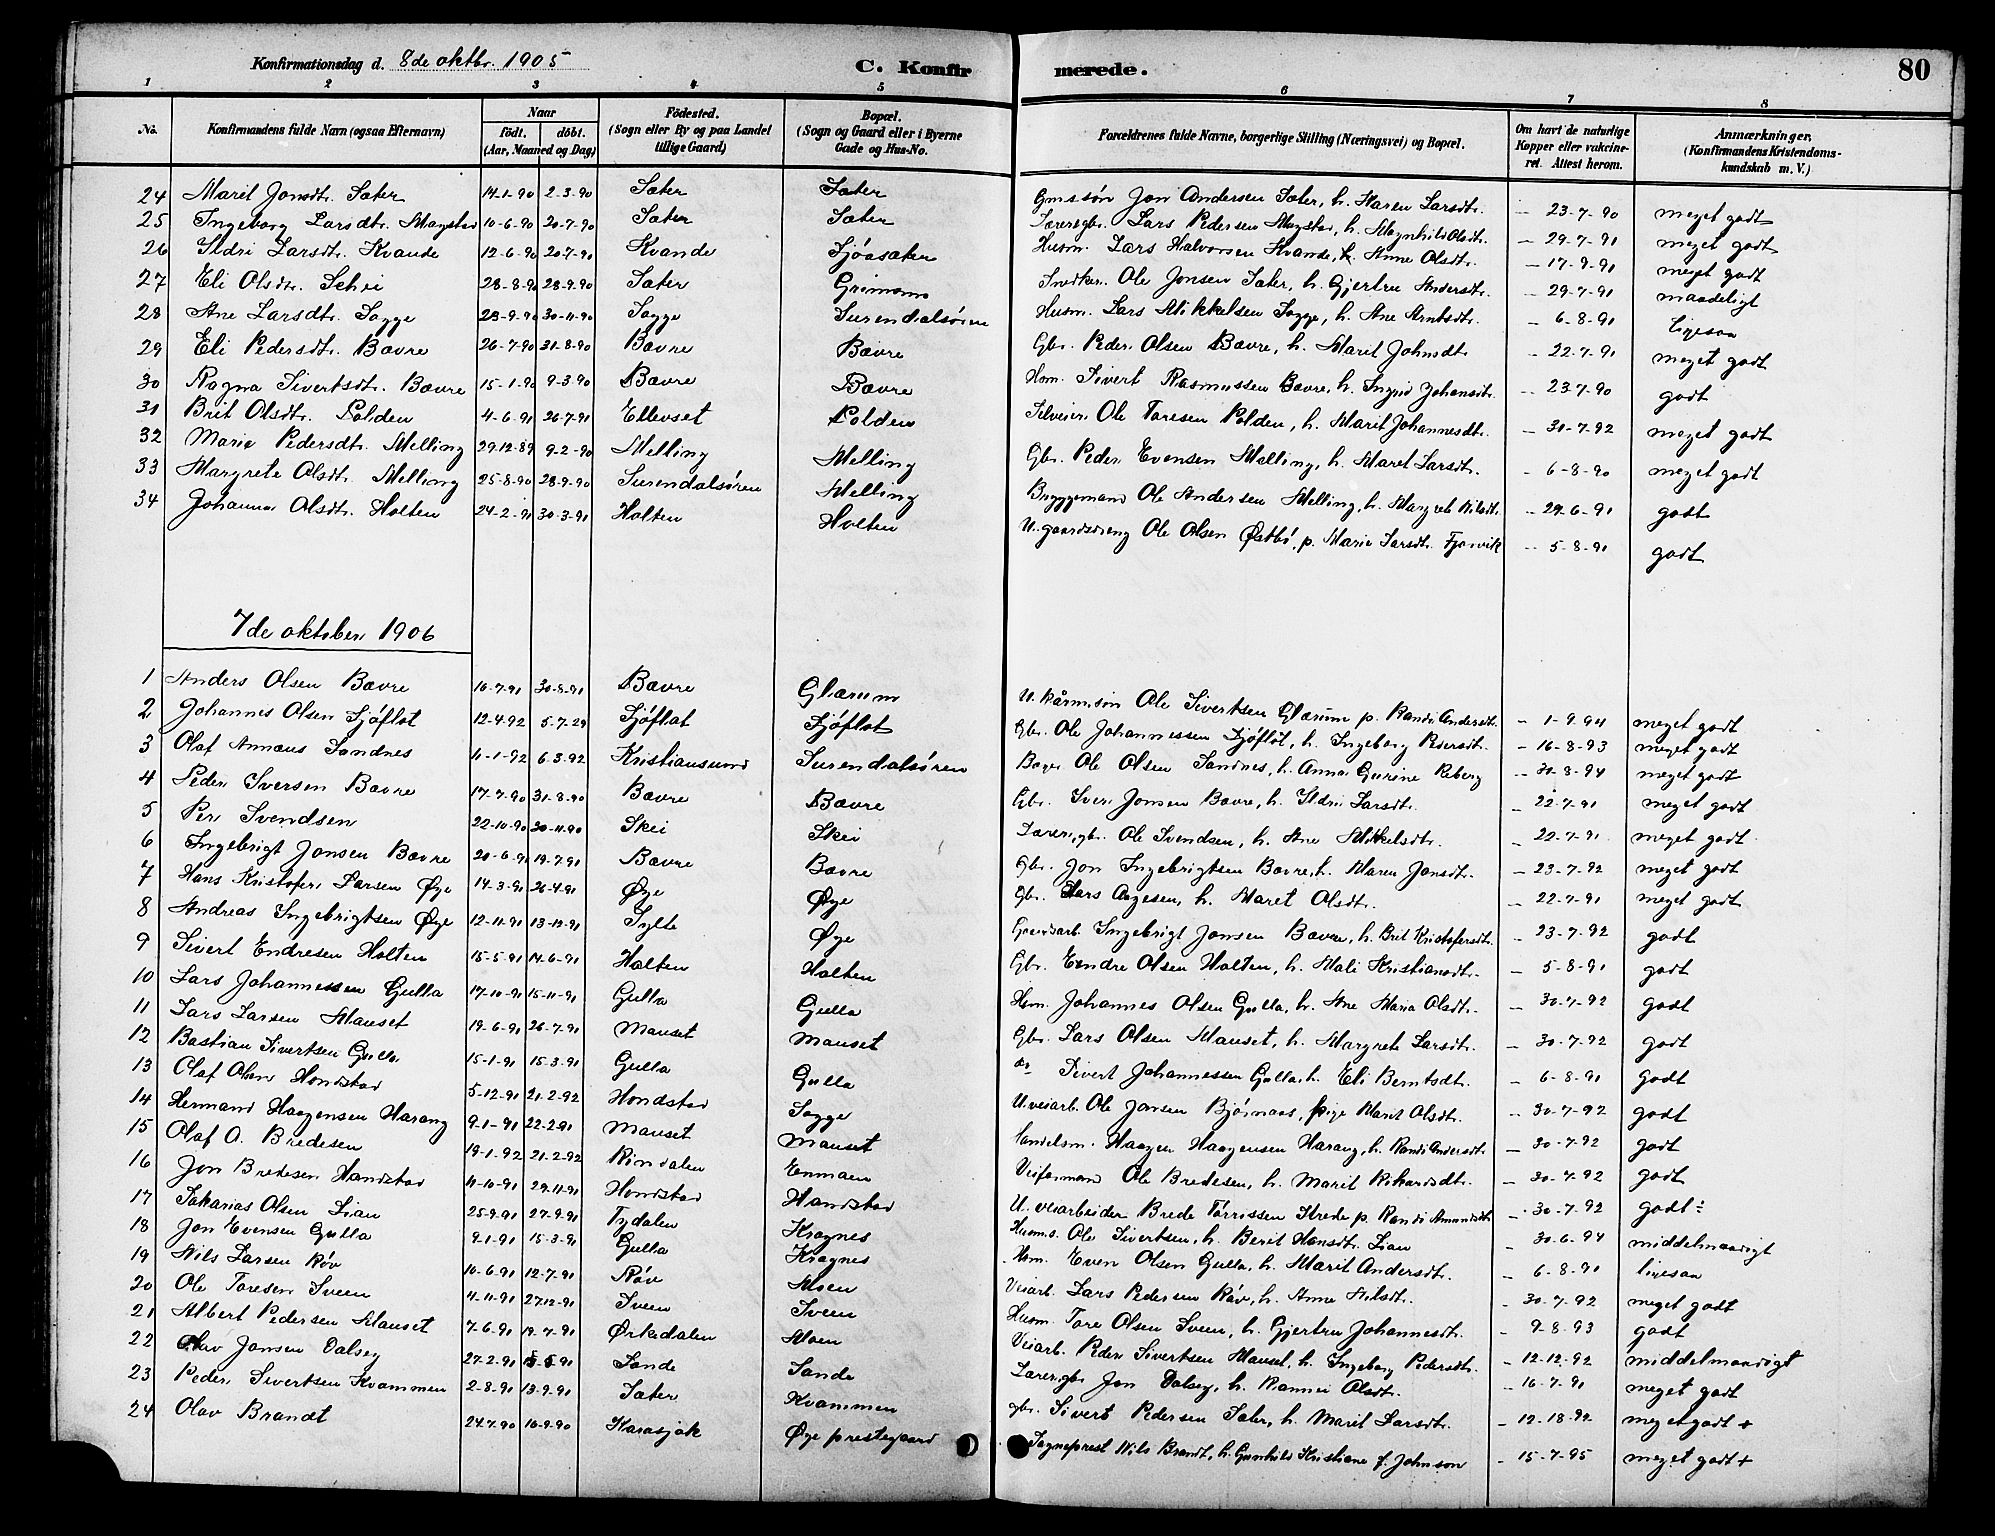 Konfirmationsdag d. 8de oktbr. 1905 C. Konfir merede. 80
1 2 3 4 5 6 7 8
No. Konfirmandens fulde Navn (ogsaa Efternavn) Naar födt. döbt. (Aar, Maaned og Dag) Födested. (Sogn eller By og paa Landet tillige Gaard) Bopæl. (Sogn og Gaard eller i Byerne Gade og Hus-No. Forældrenes fulde Navne, borgerlige Stilling (Næringsvei) og Bopæl. Om havt de naturlige Kopper eller vakcineret. Attest herom. Anmærkninger, (Konfirmandens Kristendomskundskab m. V.)
24 Marit Jonsdtr. Sæter 14-1-90 2-3-90 Sæter Sæter Gmssøn Jon Andersen Sæter, h. Maren Larsdtr. - 23-7-90 meget godt
25 Ingeborg Larsdtr. Mogstad 10-6-90 20-7-90 Sæter Sæter Lærer gbr. Lars Pedersen Mogstad, h. Magnhild Olsdtr. - 29-7-91 meget godt
26 Ildri Larsdtr. Kvande 12-6-90 20-7-90 Kvande Sjøasæter Husm. Lars Halvorsen Kvande, h. Anne Olsdtr. - 17-9-91 meget godt
27 Eli Olsdtr. Schei 28-8-90 28-9-90 Sæter Grimsmo Snedker Ole Jonsen Sæter, h. Gjertru Andersdtr. - 29-7-91 maadeligt
28 Ane Larsdtr. Sogge 23-9-90 30-11-90 Sogge Surendalsøren Husm. Lars Mikkelsen Sogge, h. Ane Arntsdtr. - 6-8-91 ligesaa
29 Eli Pedersdtr. Bævre 26-7-90 31-8-90 Bævre Bævre Gbr. Peder Olsen Bævre, h. Marit Johnsdtr. - 22-7-91 meget godt
30 Ragna Sivertsdtr. Bævre 15-1-90 9-3-90 Bævre Bævre Hsm. Sivert Rasmussen Bævre, h. Ingrid Johansdtr. - 23-7-90 godt
31 Brit Olsdtr. Polden 4-6-91 26-7-91 Ellevset Polden Selveier Ole Toresen Polden, h. Marit Johannesdtr. - 30-7-92 meget godt
32 Marie Pedersdtr. Melling 29-12-89 9-2-90 Melling Melling Gbr. Peder Evensen Melling, h. Maret Larsdtr. - 6-8-90 meget godt
33 Margrete Olsdtr. Melling 25-8-90 28-9-90 Surendalsøren Melling Bryggemand Ole Andersen Melling, h. Margrete Nilsdtr. - 29-6-91 godt
34 Johanna Olsdtr. Holten 24-2-91 30-3-91 Holten Holten U. gaardsdreng Ole Olsen Østbø, p. Marie Larsdtr. Fjorvik - 5-8-91 godt
7de oktober 1906
1 Anders Olsen Bævre 16-7-91 30-8-91 Bævre Glærum U. kårmsøn Ole Sivertsen Glærum p. Randi Andersdtr. - 1-9-94 meget godt
2 Johannes Olsen Sjøflot 12-4-92 5-7-29 Sjøflot Sjøflot Gbr. Ole Johannessen Sjøflot, h. Ingeborg Pedersdtr. - 16-8-93 meget godt
3 Olaf Annæus Sandnes 11-1-92 6-3-92 Kristianssund Surendalsøren Bager Ole Olsen Sandnes, h. Anna Gurine Reberg - 30-8-94 meget godt
4 Peder Iversen Bævre 17-7-90 31-8-90 Bævre Bævre Gbr. Iver Jonsen Bævre, h. Ildri Larsdtr. - 22-7-91 meget godt
5 Per Svendsen 22-10-90 30-11-90 Skei Skei Lærer, gbr. Ole Svendsen, h. Ane Mikkelsdtr. - 22-7-91 meget godt
6 Ingebrigt Jonsen Bævre 20-6-91 19-7-91 Bævre Bævre Gbr. Jon Ingebrigtsen Bævre, h. Maren Jonsdt. - 23-7-92 meget godt
7 Hans Kristofer Larsen Øye 14-3-91 26-4-91 Øye Øye Gbr. Lars Aagesen, h. Maret Olsdtr. - 22-7-91 meget godt
8 Andreas Ingebrigtsen Øye 12-11-91 13-12-91 Sylte Øye Gaardarb. Ingebrigt Jonsen Bævre, h. Brit Kristofersdtr. - 23-7-92 godt
9 Sivert Endresen Holten 15-5-91 14-6-91 Holten Holten Gbr. Endre Olsen Holten, h. Mali Kristiansdtr. - 5-8-91 godt
10 Lars Johannessen Gulla 17-10-91 15-11-91 Gulla Gulla Hsm. Johannes Olsen Gulla, h. Ane Maria Olsdtr. - 30-7-92 godt
11 Lars Larsen Mauset 19-6-91 26-7-91 Mauset Mauset Gbr. Lars Olsen Mauset, h. Margrete Larsdtr. - 30-7-92 godt
12 Bastian Sivertsen Gulla 15-1-91 15-3-91 Gulla Gulla do Sivert Johannessen Gulla, h. Eli Berntsdtr. - 6-8-91 godt
13 Olaf Olsen Hondstad 5-12-91 21-2-92 Hondstad Sogge U. veiarb. Ole Jonsen Bjørnaas, pige Marit Olsdtr. - 30-7-92 godt
14 Hermand Haagensen Harang 9-1-91 22-2-91 Mauset Mauset Landelsm. Haagen Haagensen Harang, h. Randi Andersdtr - 30-7-92 godt
15 Olaf O. Bredesen 19-1-92 21-2-92 Rindalen Enmoen Veiformand Ole Bredesen, h. Marit Rikardsdtr. - 30-7-92 godt
16 Jon Bredesen Handstad 11-10-91 29-11-91 Hondstad Handstad U. veiarbeider Brede Tørrissen Strede p. Randi Amundsdtr - 30-7-92 godt÷
17 Sakarias Olsen Lian 25-9-91 27-9-91 Tydalen Krognes Husms. Ole Sivertsen, h. Berit Hansdtr. Lian - 30-6-94 middelmaadigt
18 Jon Evensen Gulla 9-1-91 15-3-91 Gulla Krognes Hsm. Even Olsen Gulla, h. Marit Andersdtr. - 6-8-91 ligesaa
19 Nils Larsen Røv 10-6-91 12-7-91 Røv Moen Veiarb. Lars Pedersen Røv, h. Anne Nilsdtr. - 30-7-92 meget godt
20 Ole Toresen Sveen 4-11-91 27-12-91 Sveen Sveen Husm. Tore Olsen Sveen, h. Gjertru Johannesdtr. - 9-8-93 godt
21 Albert Pedersen Mauset 7-6-91 19-7-91 Ørkedalen Moen Veiarb. Peder Sivertsen Mauset, h. Ingeborg Pedersdtr. - 12-12-92 middelmaadigt
22 Olav Jonsen Dalsey 27-2-91 Sande Sande Lærer, gbr Jon Dalsey, h. Rannei Olsdtr. - 16-7-91 meget godt
23 Peder Sivertsen Kvammen 2-8-91 13-9-91 Sæter Kvammen gbr. Sivert Pedersen Sæter, h. Marit Larsdtr. - 12-18-92 meget godt +
24 Olav Brandt 24-7-90 16-9-90 Karasjok Øye prestegaard Sogneprest Nils Brandt, h. Gunhild Kristiane f. Johnson - 15-7-95 meget godt +